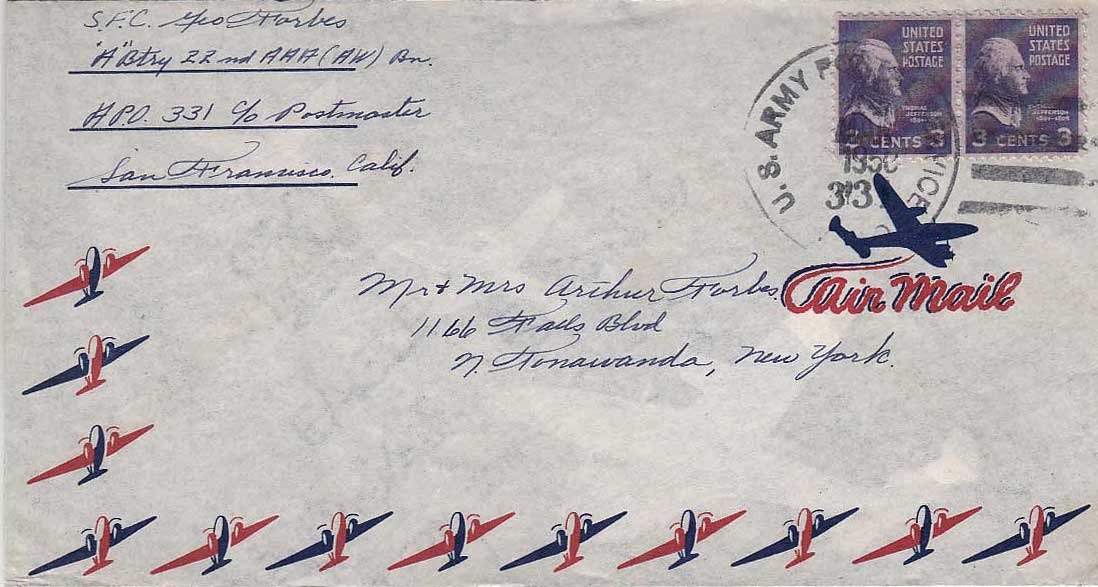 S.F.C. Geo Forbes
"A" Btry 22nd AAA (AW) Bn.
A.P.O. 331 c/o Postmaster
San Fransisco, Calif.
UNITED STATES POSTAGE
THOMAS JEFFERSON
3 CENTS 3
UNITED STATES POSTAGE
JEFFERSON
1801-1809
3 CENTS 3
U.S. ARMY
331
Air Mail
Mr & Mrs Arthur Forbes
1166 Falls Blvd
N. Tonawanda, New York.